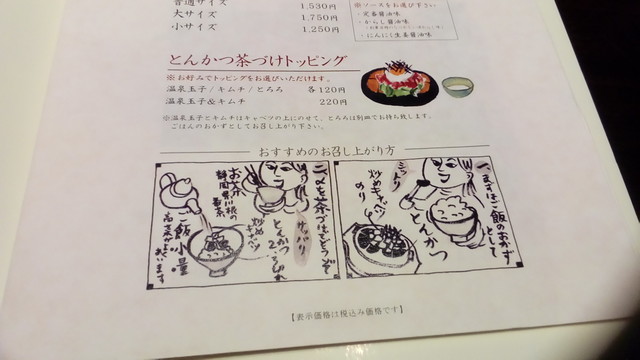 普通サイズ 1,530円
大サイズ 1,750円
小サイズ 1,250円
※ソースをお選び下さい
・定番醤油味
・からし醤油味
・にんにく生姜醤油味
とんかつ茶づけトッピング
※お好みでトッピングをお選びいただけます。
温泉玉子/キムチ/とろろ 各120円
温泉玉子&キムチ 220円
※温泉玉子とキムチはキャベツの上にのせて、とろろは別皿でお持ち致します。
ごはんのおかずとしてお召し上がり下さい。
おすすめのお召し上がり方
一、まずはご飯のおかずとして
とんかつ
ニットリ
炒めキャベツ
のり
二、〆を茶づけでどうぞ
サッパリ
とんかつ
炒めキャベツ
お茶
ご飯小量
【表示価格は税込み価格です】